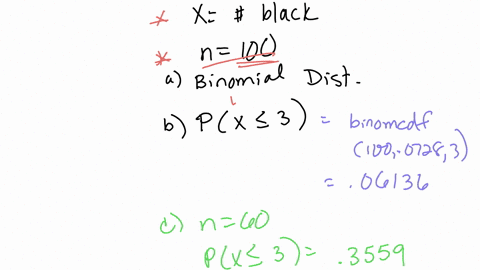 * X= # black
* n= 100
a) Binomial Dist.
b) P(X ≤ 3) = binomcdf
(100, .0728, 3)
= .06136
c) n=60
P(X ≤ 3) = .3559